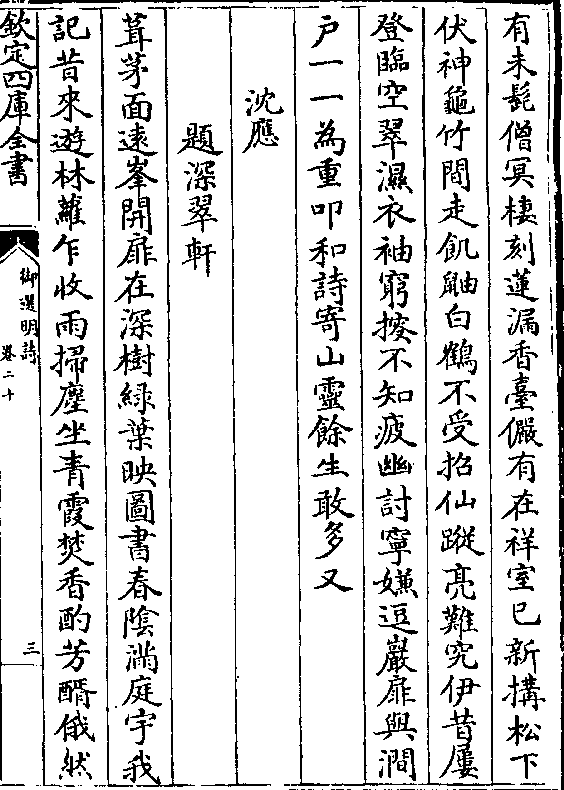 有未髡僧冥棲刻蓮漏香臺儼有在祥室已新搆松下
伏神龜竹間走飢鼬白鶴不受招仙蹤亮難究伊昔屢
登臨空翠濕衣袖窮搜不知疲幽討寧嫌逗巖扉與澗
户一一為重叩和詩寄山靈餘生敢多又
沈應
題深翠軒
葺茅面遠峯開扉在深樹緑葉映圖書春陰滿庭宇我
記昔來遊林蘿乍收雨掃塵坐青霞焚香酌芳醑俄然
欽定四庫全書
御選明詩
卷二十
三